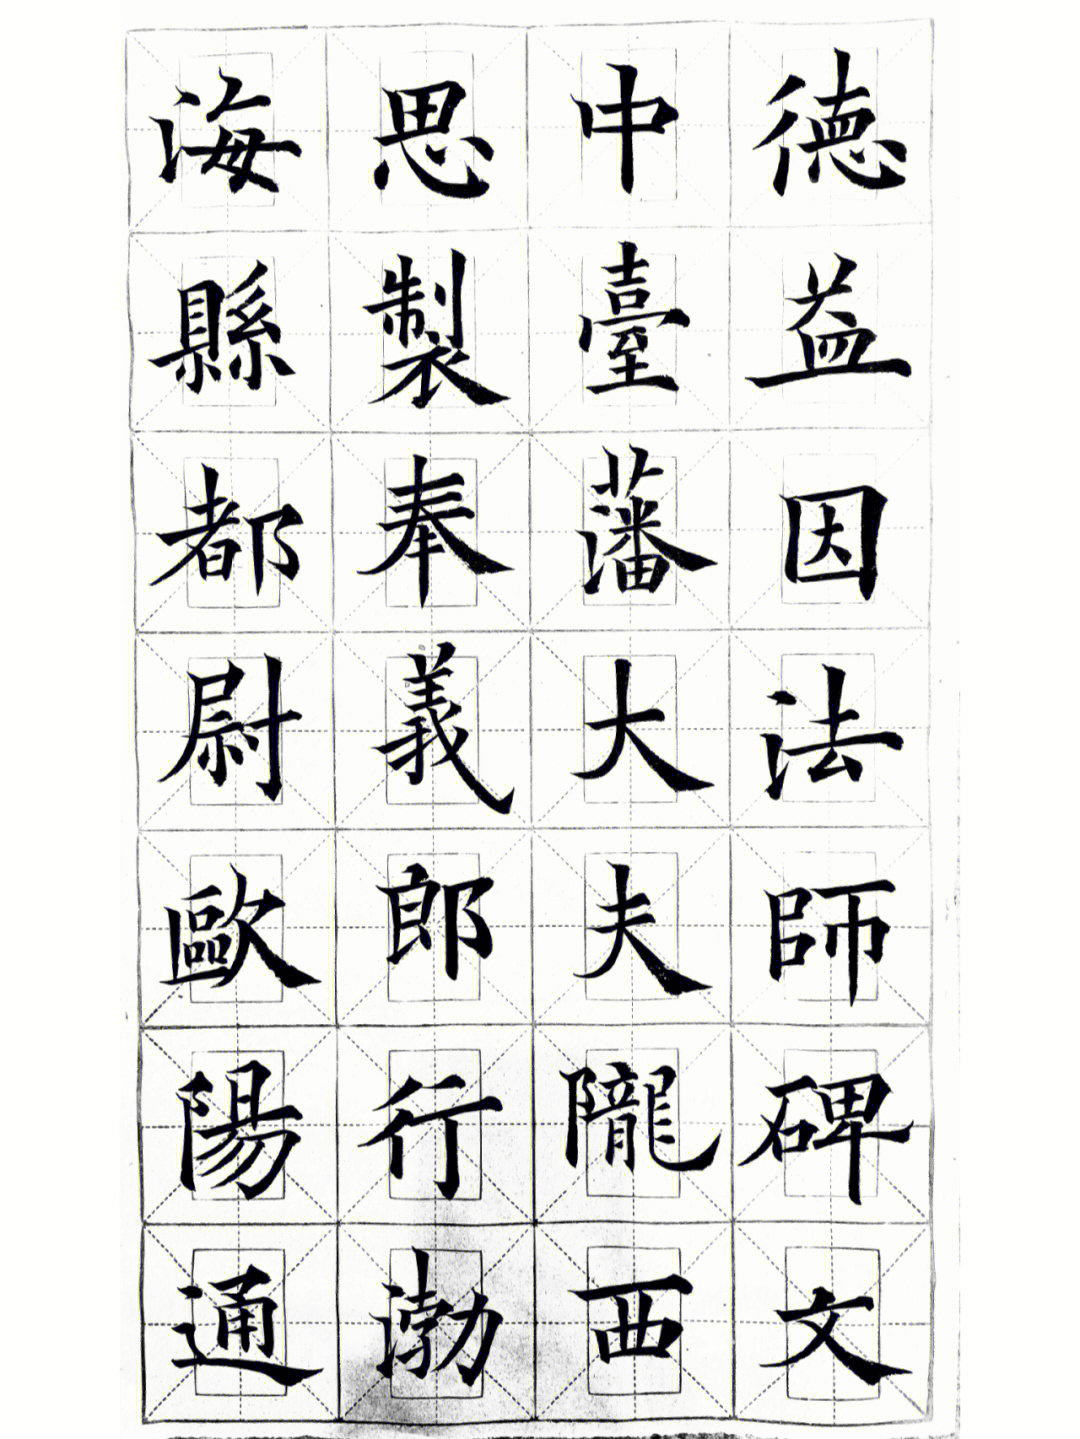 德益因法師碑文
中臺藩大夫隴西
思製奉義郎行渤
海縣都尉歐陽通